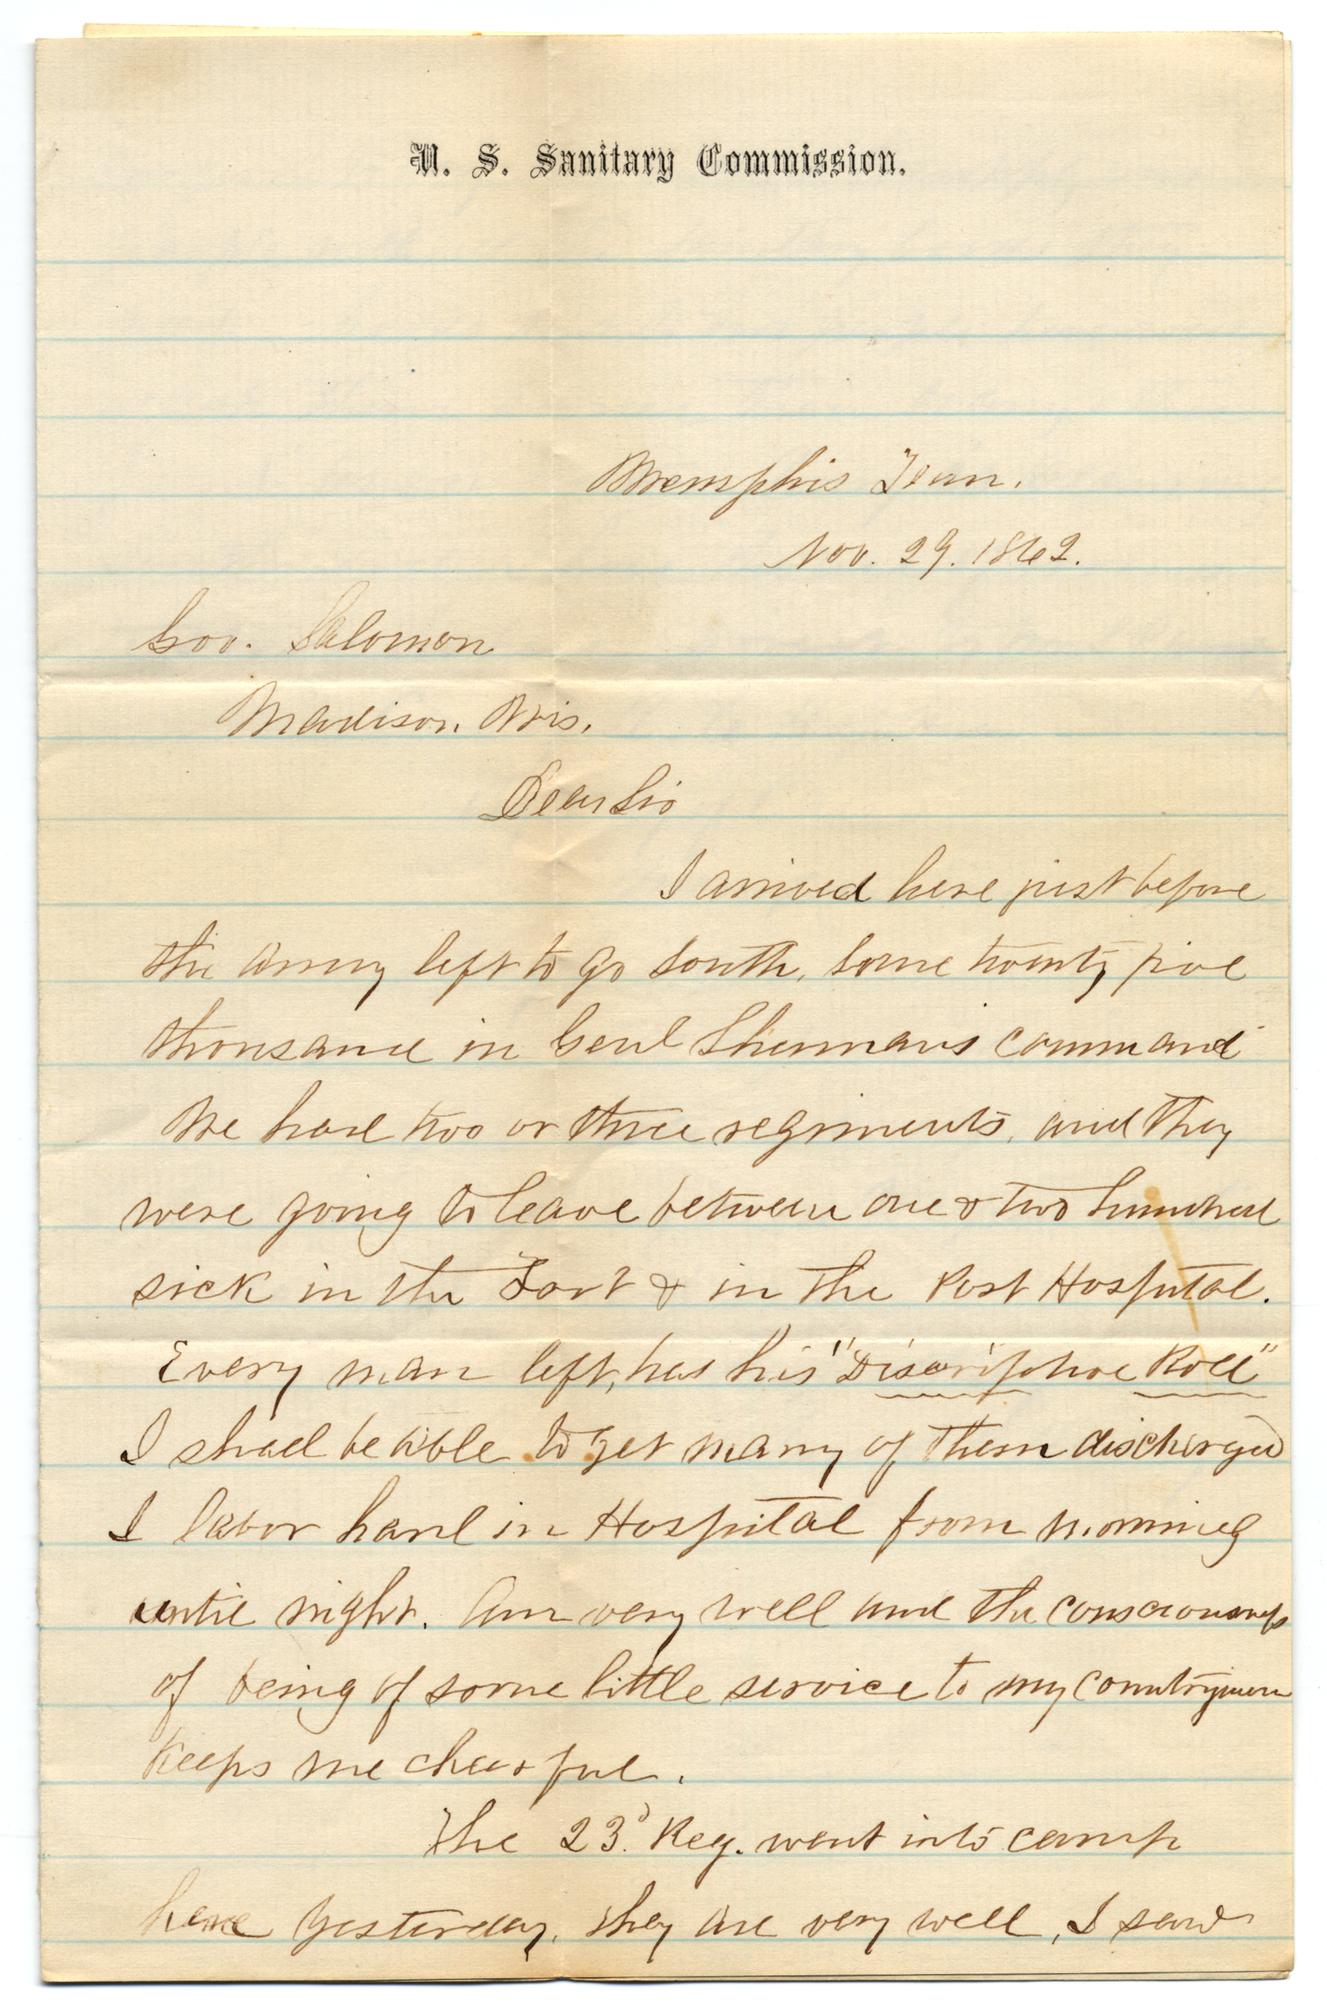 U. S. Sanitary Commission.
Memphis Tenn.
Nov. 29. 1862.
Gov. Salomon
Madison, Wis.
Dear Sir
I arrived here just before
the army left to go South, some twenty five
thousand in Genl Shermans command
We have two or three regiments, and they
were going to leave between one & two hundred
sick in the Fort & in the Post Hospital.
Every man left, has his "Discriptive Roll"
I shall be able to get many of them discharged
I labor hard in Hospital from morning
until night. Am very well and the consciousness
of being of some little service to my countrymen
keeps me cheerful.
The 23d. Reg. went into camp
here yesterday. They are very well, I saw